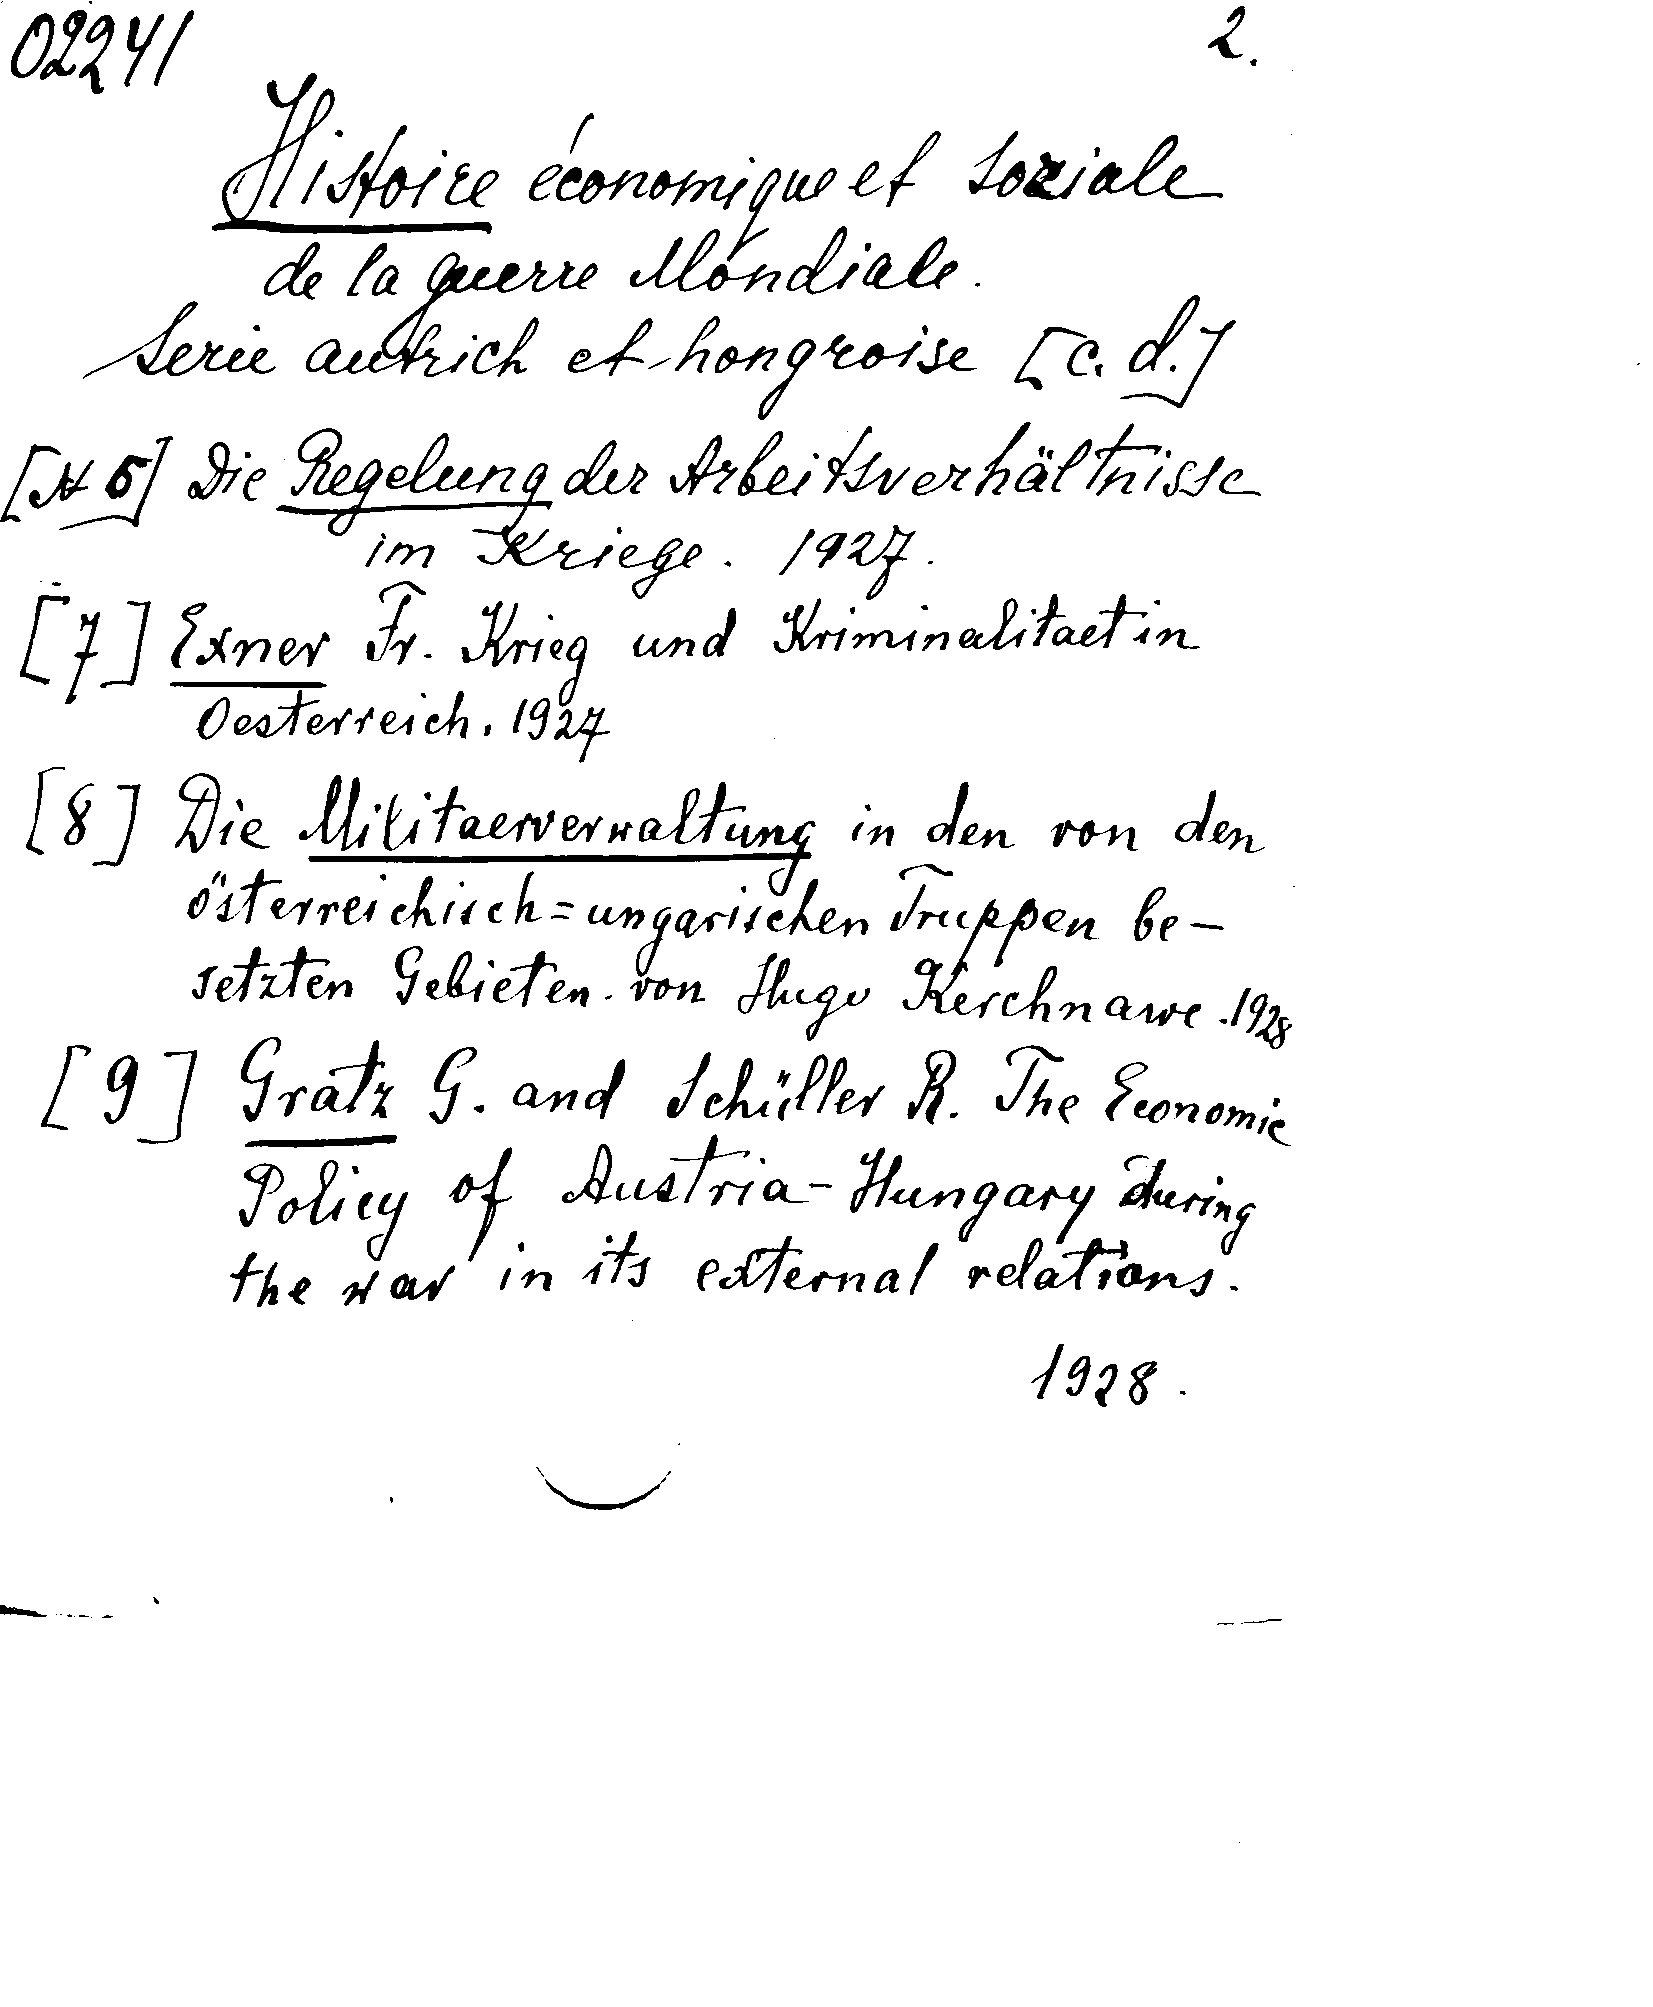 02241
2.
Histoire économique et soziale
de la guerre Mondiale.
Serie autrich et hongroise [c. d.]
[№ 5] Die Regelung der Arbeitsverhältnisse
im Kriege. 1927.
[7] Exner Fr. Krieg und Kriminalitaet in
Oesterreich. 1927
[8] Die Militaerverwaltung in den von den
österreichisch=ungarischen Truppen be-
setzten Gebieten. von Hugo Kerchnawe. 1928
[9] Gratz G. and Schüller R. The Economic
Policy of Austria-Hungary during
the war in its external relations.
1928.